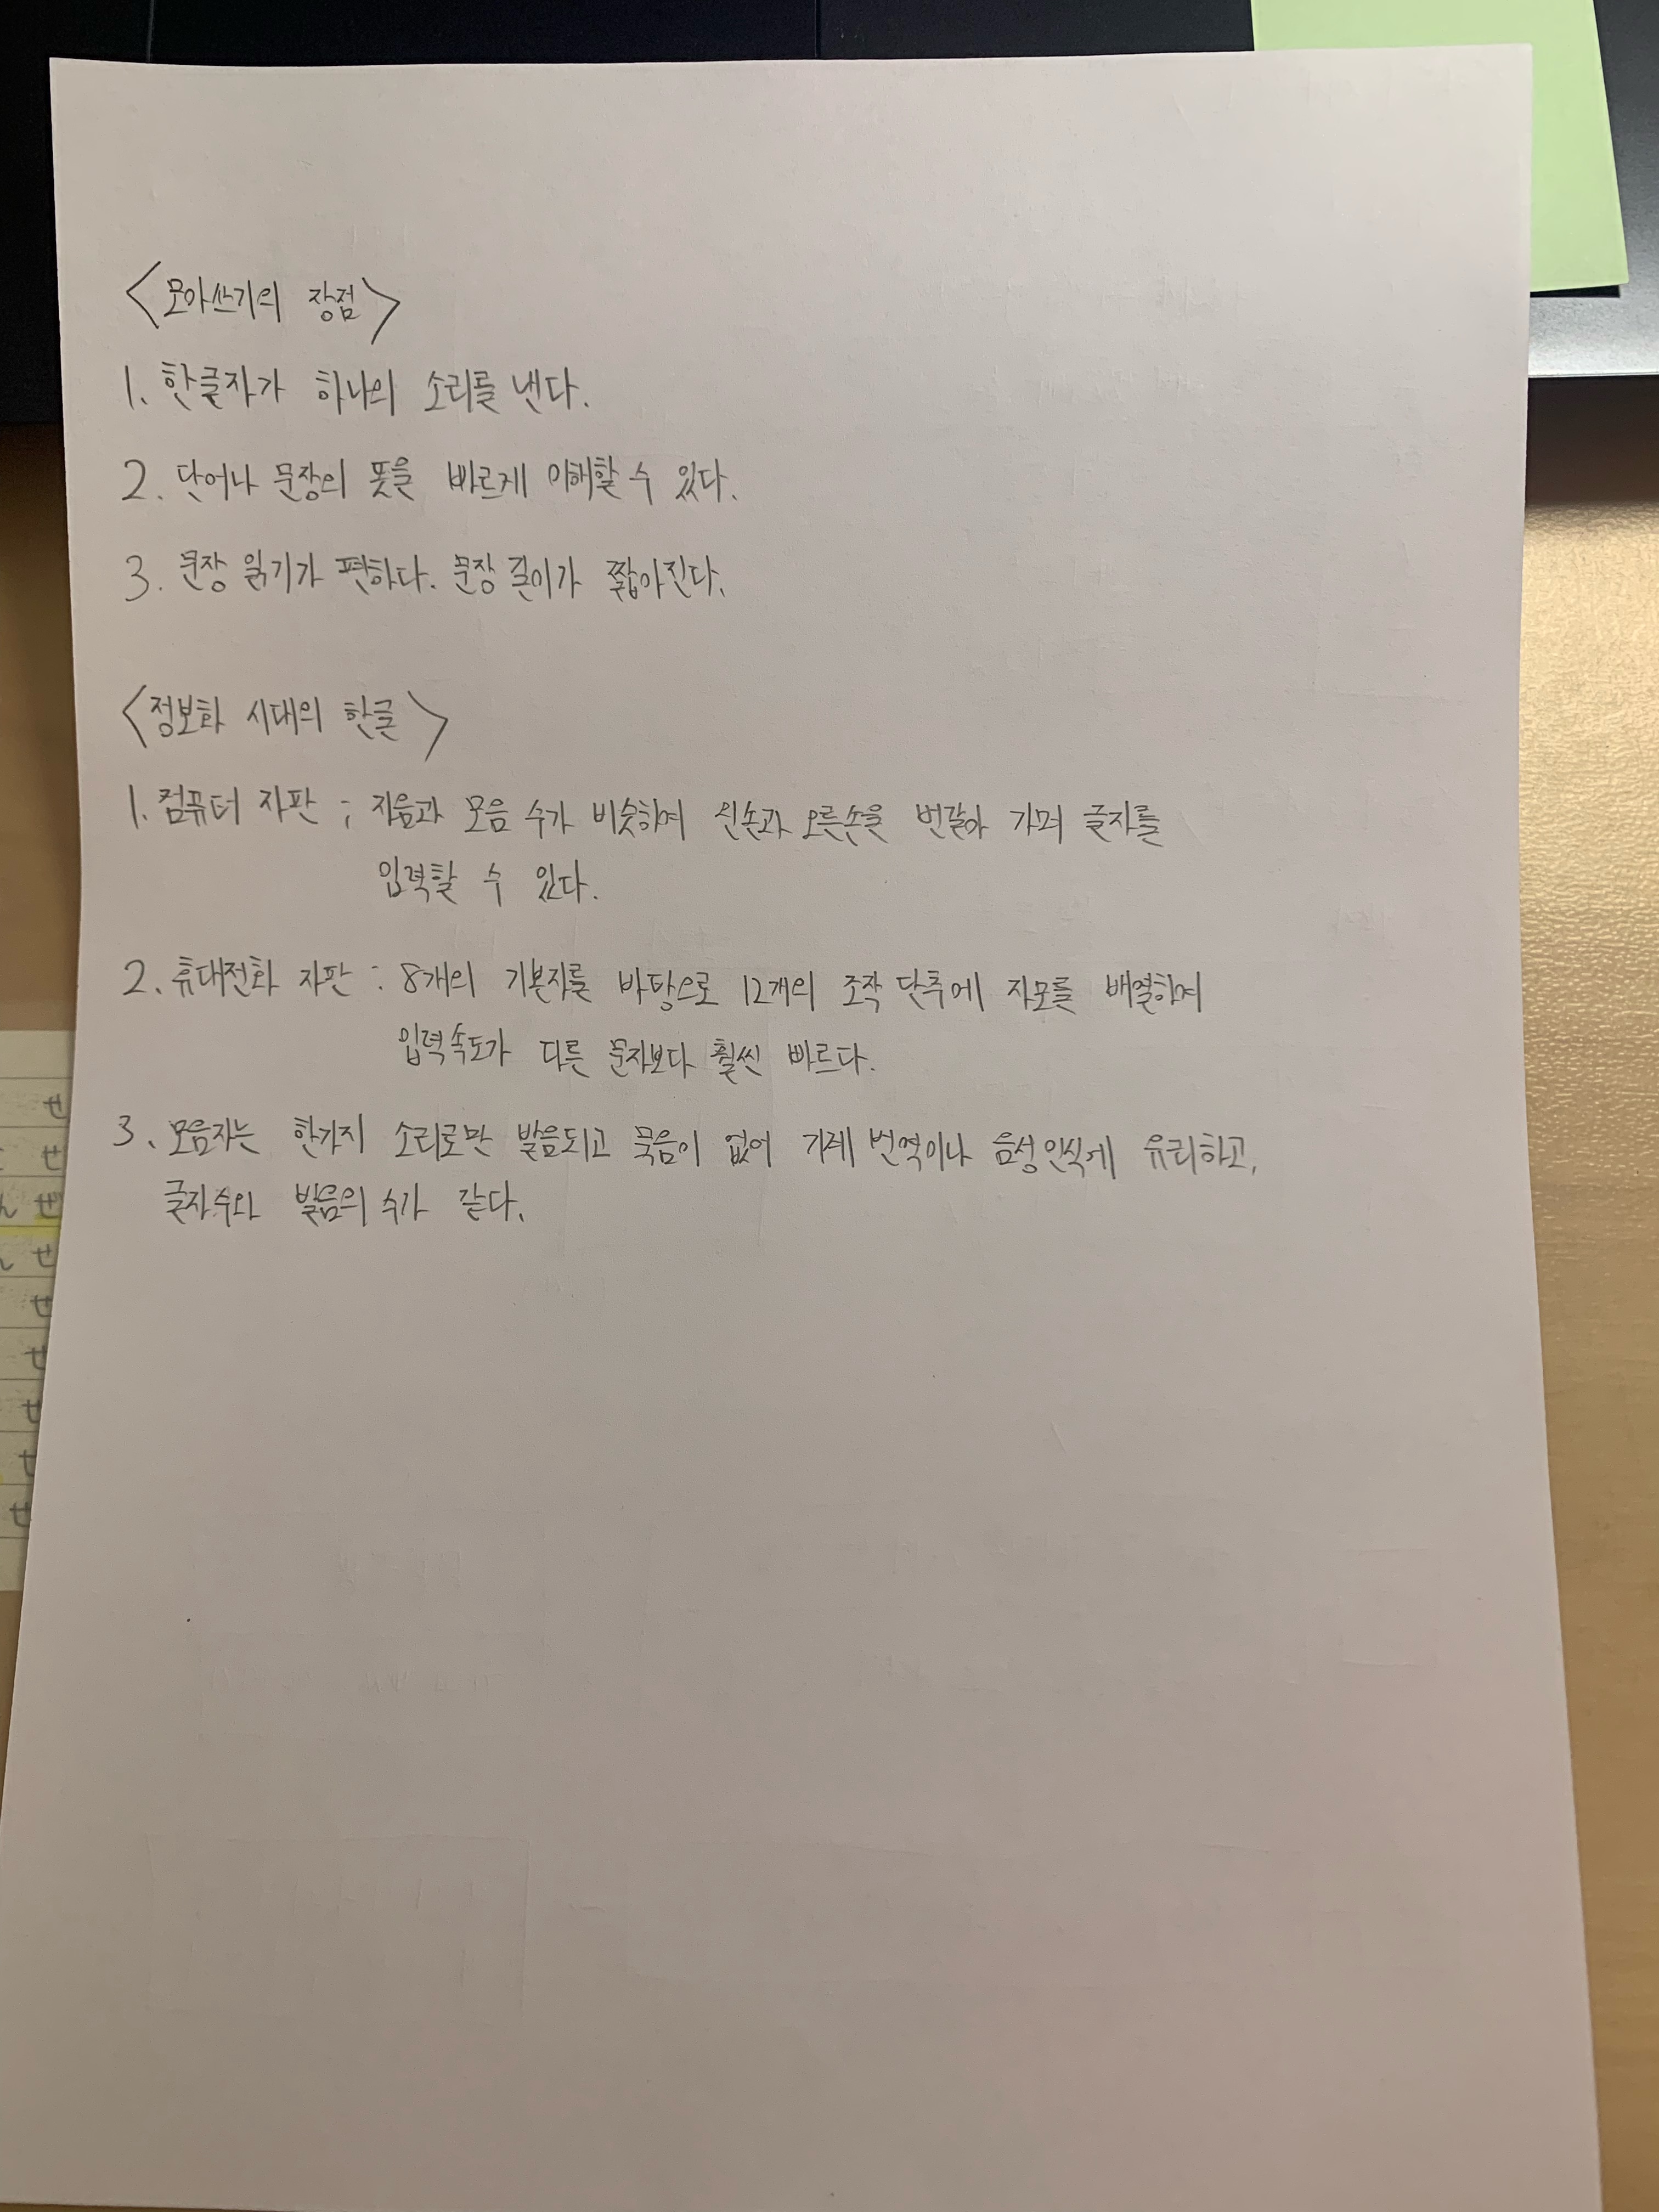 <모아쓰기의 장점>
1. 한글자가 하나의 소리를 낸다.
2. 단어나 문장의 뜻을 바르게 이해할 수 있다.
3. 문장 읽기가 편하다. 문장 길이가 짧아진다.
<정보화 시대의 한글>
1. 컴퓨터 자판 : 자음과 모음 수가 비슷하여 왼손과 오른손을 번갈아 가며 글자를
입력할 수 있다.
2. 휴대전화 자판 : 8개의 기본자를 바탕으로 12개의 조작 단추에 자모를 배열하여
입력속도가 다른 문자보다 훨씬 빠르다.
3. 모음자는 한가지 소리로만 발음되고 묵음이 없어 기계 번역이나 음성인식에 유리하고,
글자수와 발음의 수가 같다.
せ
せ
ぜ
せ
せ
せ
せ
せ
せ